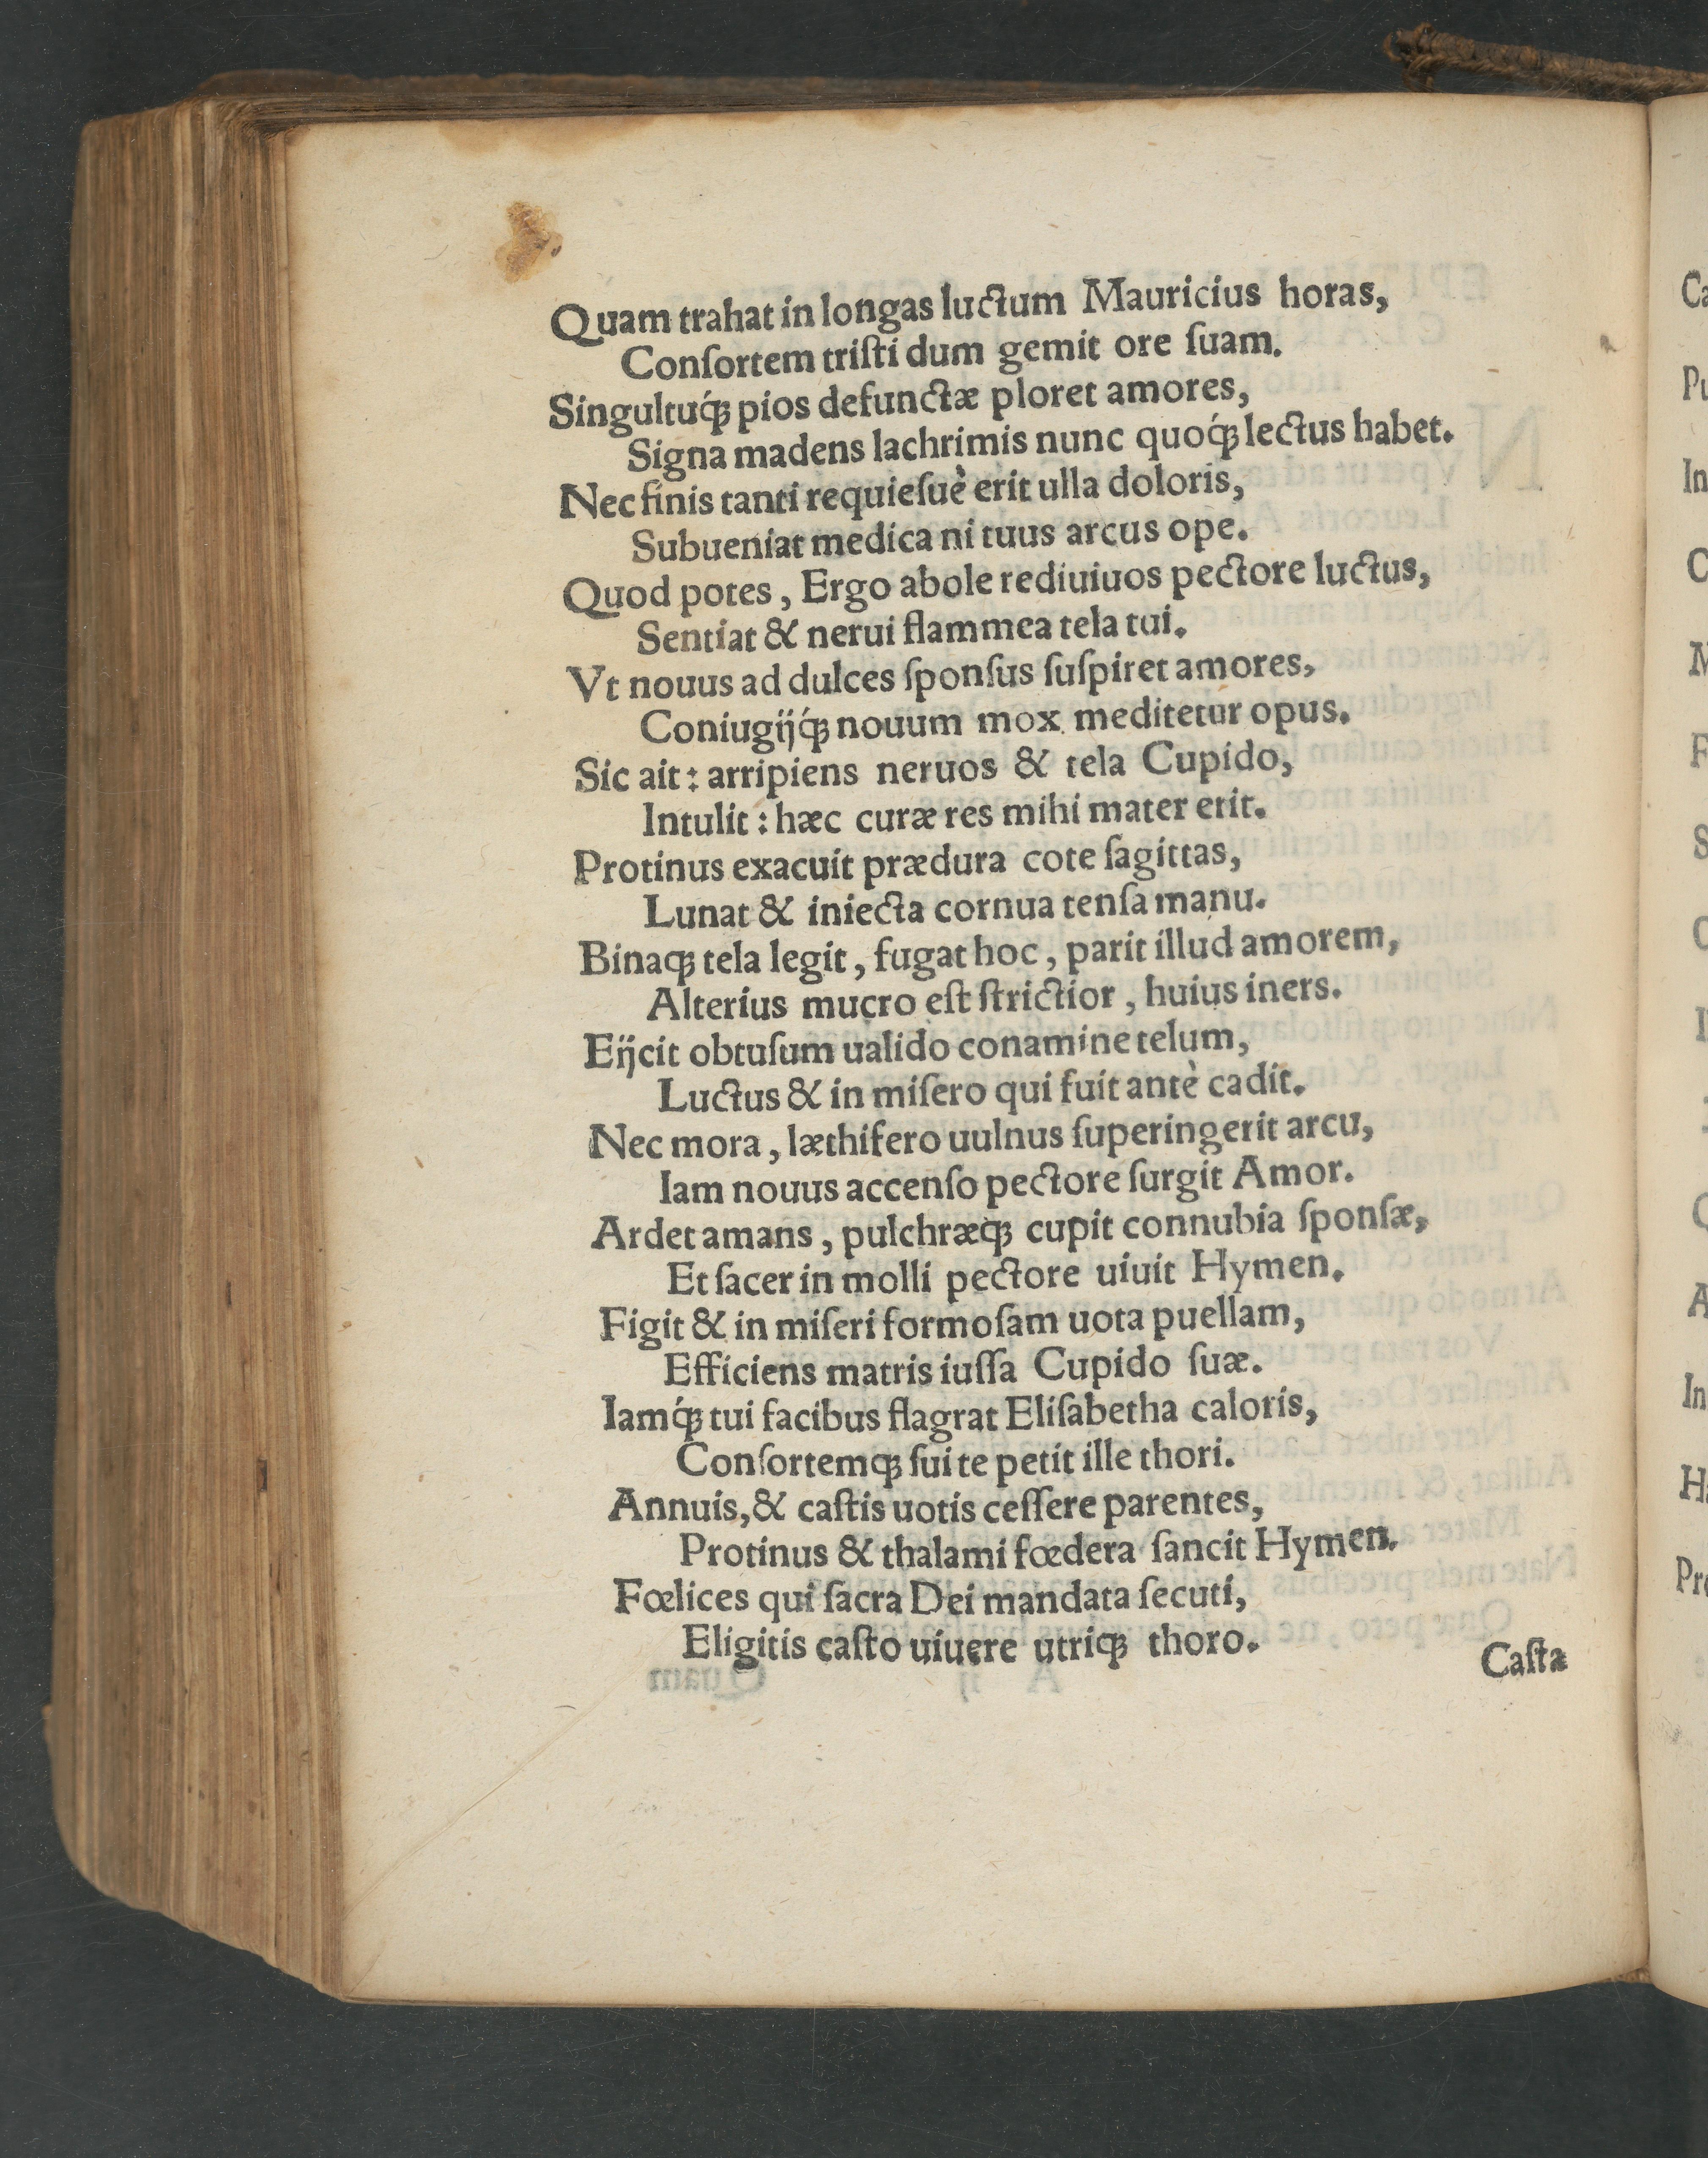 Quam trahat in longas luctum Mauricius horas,
Conſortem triſti dum gemit ore ſuam.
Singultuq́ꝫ pios defunctæ ploret amores,
Signa madens lachrimis nunc quoq́ꝫ lectus habet.
Nec finis tanti requieſuè erit ulla doloris,
Subueniat medica ni tuus arcus ope.
Quod potes, Ergo abole rediuiuos pectore luctus,
Sentiat & nerui flammea tela tui.
Vt nouus ad dulces ſponſus ſuſpiret amores,
Coniugijq́ꝫ nouum mox meditetur opus.
Sic ait: arripiens neruos & tela Cupido,
Intulit: hæc curæ res mihi mater erit.
Protinus exacuit prædura cote ſagittas,
Lunat & iniecta cornua tenſa manu.
Binaqꝫ tela legit, fugat hoc, parit illud amorem,
Alterius mucro eſt ſtrictior, huius iners.
Eijcit obtuſum ualido conamine telum,
Luctus & in miſero qui fuit antè cadit.
Nec mora, læthifero uulnus ſuperingerit arcu,
Iam nouus accenſo pectore ſurgit Amor.
Ardet amans, pulchræqꝫ cupit connubia ſponſæ,
Et ſacer in molli pectore uiuit Hymen.
Figit & in miſeri formoſam uota puellam,
Efficiens matris iuſſa Cupido ſuæ.
Iamq́ꝫ tui facibus flagrat Eliſabetha caloris,
Conſortemqꝫ ſui te petit ille thori.
Annuis, & caſtis uotis ceſſere parentes,
Protinus & thalami fœdera ſancit Hymen.
Fœlices qui ſacra Dei mandata ſecuti,
Eligitis caſto uiuere utriqꝫ thoro.
Caſta